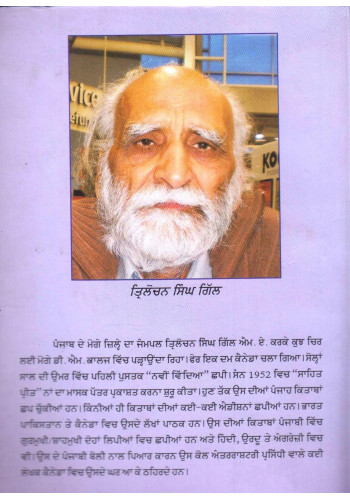 VICE
efun
KO
ਤ੍ਰਿਲੋਚਨ ਸਿੰਘ ਗਿੱਲ
ਪੰਜਾਬ ਦੇ ਮੋਗੇ ਜ਼ਿਲ੍ਹੇ ਦਾ ਜੰਮਪਲ ਤ੍ਰਿਲੋਚਨ ਸਿੰਘ ਗਿੱਲ ਐਮ. ਏ. ਕਰਕੇ ਕੁਝ ਚਿਰ
ਲਈ ਮੋਗੇ ਡੀ. ਐਮ. ਕਾਲਜ ਵਿੱਚ ਪੜ੍ਹਾਉਂਦਾ ਰਿਹਾ। ਫੇਰ ਇਕ ਦਮ ਕੈਨੇਡਾ ਚਲਾ ਗਿਆ। ਸੋਲ੍ਹਾਂ
ਸਾਲ ਦੀ ਉਮਰ ਵਿੱਚ ਪਹਿਲੀ ਪੁਸਤਕ "ਨਵੀਂ ਵਿੱਦਿਆ" ਛਪੀ। ਸੰਨ 1952 ਵਿਚ "ਸਾਹਿਤ
ਪ੍ਰੀਤ" ਨਾਂ ਦਾ ਮਾਸਕ ਪੱਤਰ ਪ੍ਰਕਾਸ਼ਤ ਕਰਨਾ ਸ਼ੁਰੂ ਕੀਤਾ। ਹੁਣ ਤੱਕ ਉਸ ਦੀਆਂ ਪੰਜਾਹ ਕਿਤਾਬਾਂ
ਛਪ ਚੁੱਕੀਆਂ ਹਨ। ਕਿੰਨੀਆਂ ਹੀ ਕਿਤਾਬਾਂ ਦੀਆਂ ਕਈ-ਕਈ ਐਡੀਸ਼ਨਾਂ ਛਪੀਆਂ ਹਨ। ਭਾਰਤ
ਪਾਕਿਸਤਾਨ ਤੇ ਕੈਨੇਡਾ ਵਿਚ ਉਸਦੇ ਲੱਖਾਂ ਪਾਠਕ ਹਨ। ਉਸ ਦੀਆਂ ਕਿਤਾਬਾਂ ਪੰਜਾਬੀ ਵਿੱਚ
ਗੁਰਮੁਖੀ/ਸ਼ਾਹਮੁਖੀ ਦੋਹਾਂ ਲਿਪੀਆਂ ਵਿਚ ਛਪੀਆਂ ਹਨ ਅਤੇ ਹਿੰਦੀ, ਉਰਦੂ ਤੇ ਅੰਗਰੇਜ਼ੀ ਵਿਚ
ਵੀ। ਉਸ ਦੇ ਪੰਜਾਬੀ ਬੋਲੀ ਨਾਲ ਪਿਆਰ ਕਾਰਨ ਉਸ ਕੋਲ ਅੰਤਰਰਾਸ਼ਟਰੀ ਪ੍ਰਸਿੱਧੀ ਵਾਲੇ ਕਈ
ਲੇਖਕ ਕੈਨੇਡਾ ਵਿਚ ਉਸਦੇ ਘਰ ਆ ਕੇ ਠਹਿਰਦੇ ਹਨ।